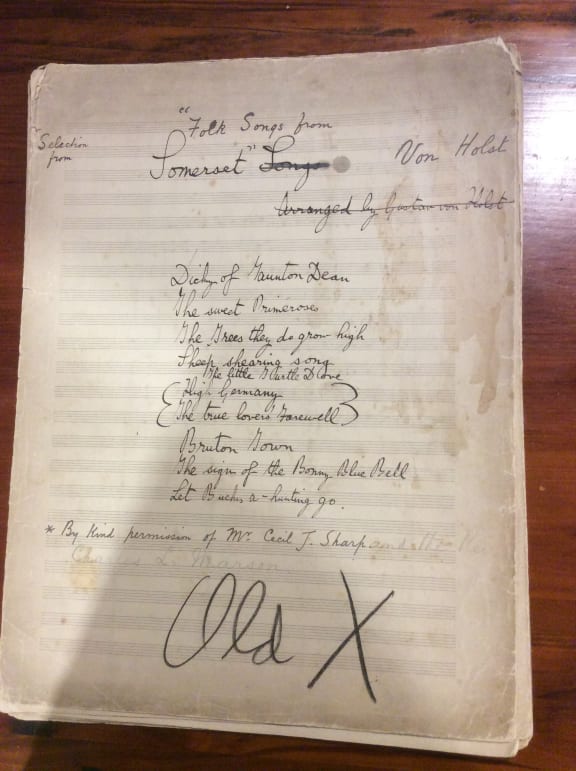 "Folk Songs from
"Selection
from
Somerset" Songs
Von Holst
Arranged by Gustav von Holst
Dicky of Taunton Dean
The sweet Primeroses
The Trees they do grow high
Sheep shearing song
little Turtle Dove
High Germany
The true lovers' Farewell
Bruton Town
The sign of the Bonny Blue Bell
Let Bucks a-hunting go.
* By Kind permission of Mr. Cecil J. Sharp and the
Charles L. Marson
Old X